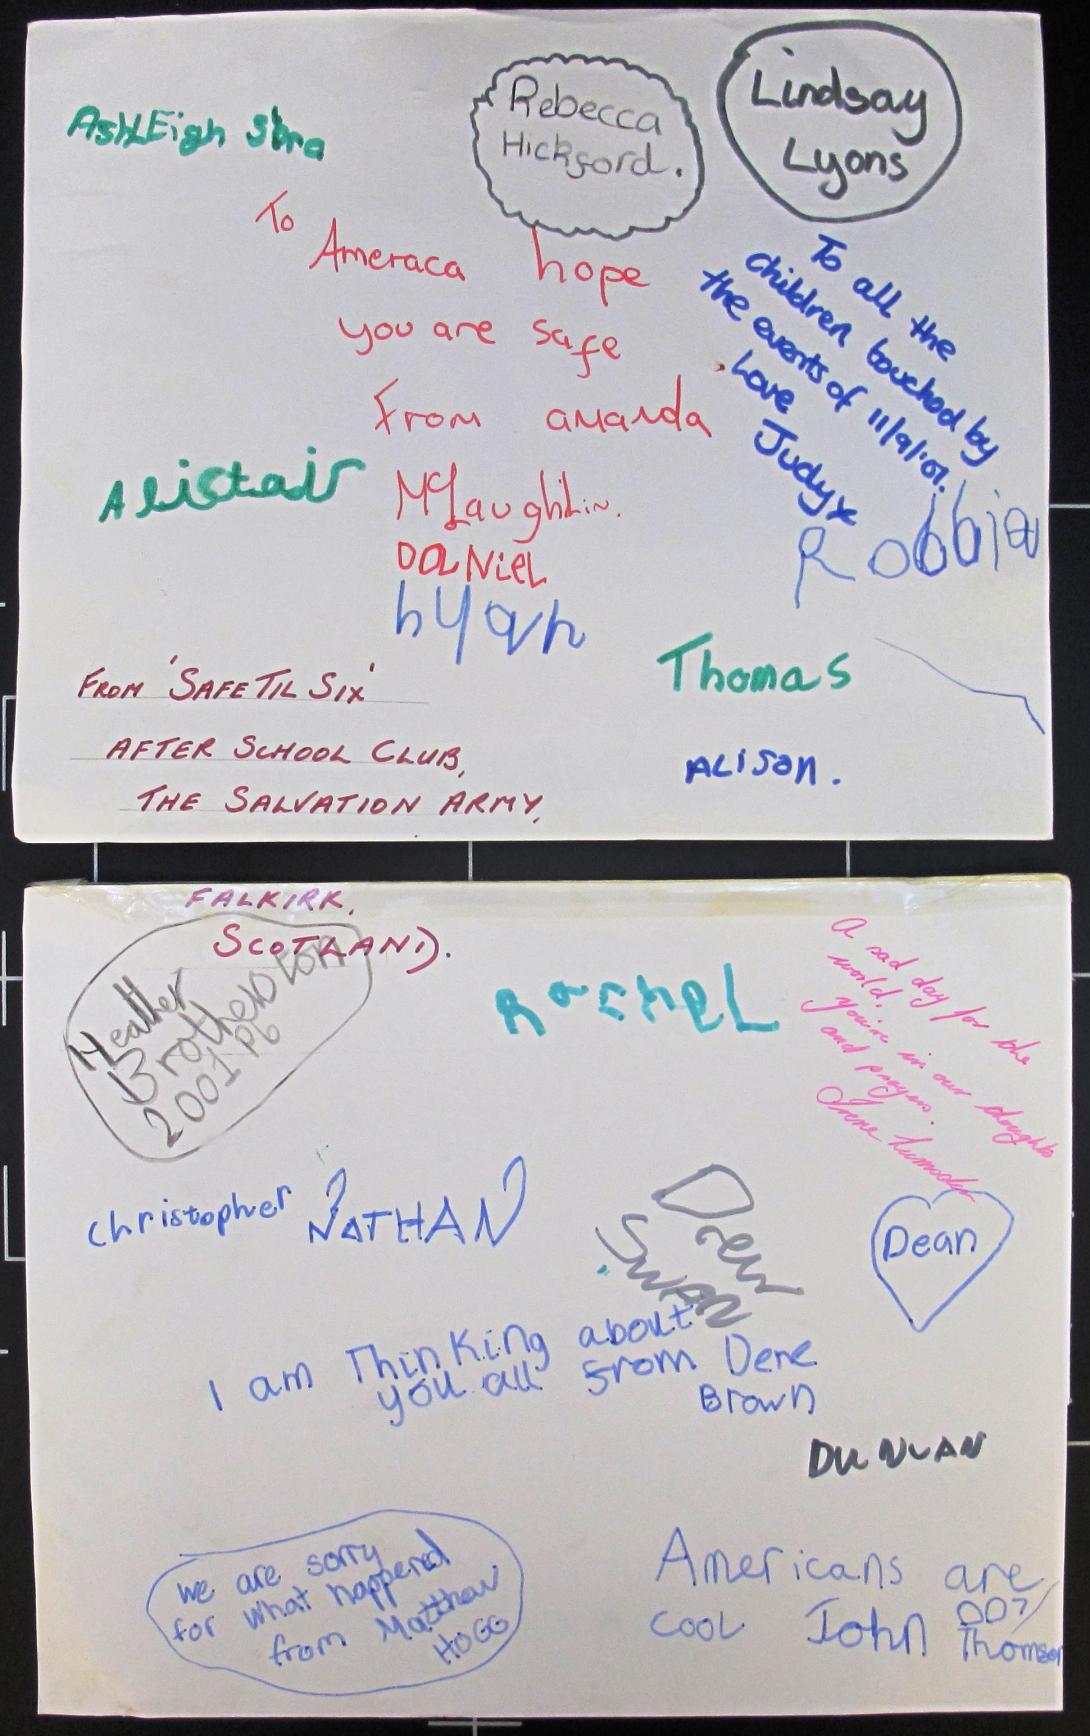 AshLEigh Shra
Rebecca
Hickford.
Lindsay
Lyons
To
Ameraca hope
you are safe
From amanda
McLaughLin.
To all the
children touched by
the events of 11/9/01.
Love
Judy x
Alistair
DaNieL
Robbie
hyan
Thomas
ALison.
FROM 'SAFE TIL SIX'
AFTER SCHOOL CLUB,
THE SALVATION ARMY,
FALKIRK,
SCOTLAND).
Heather
Brotherston
2001 P6
RacheL
A sad day for the
world.
You're in our thoughts
and prayers.
Irene
christopher
NATHAN
Drew
SWAN
Dean
I am Thinking about
you all from Dene
Brown
DUNCAN
we are sorry
for what happened
from Matthew
HOGG
Americans are
cooL John 007
Thomson